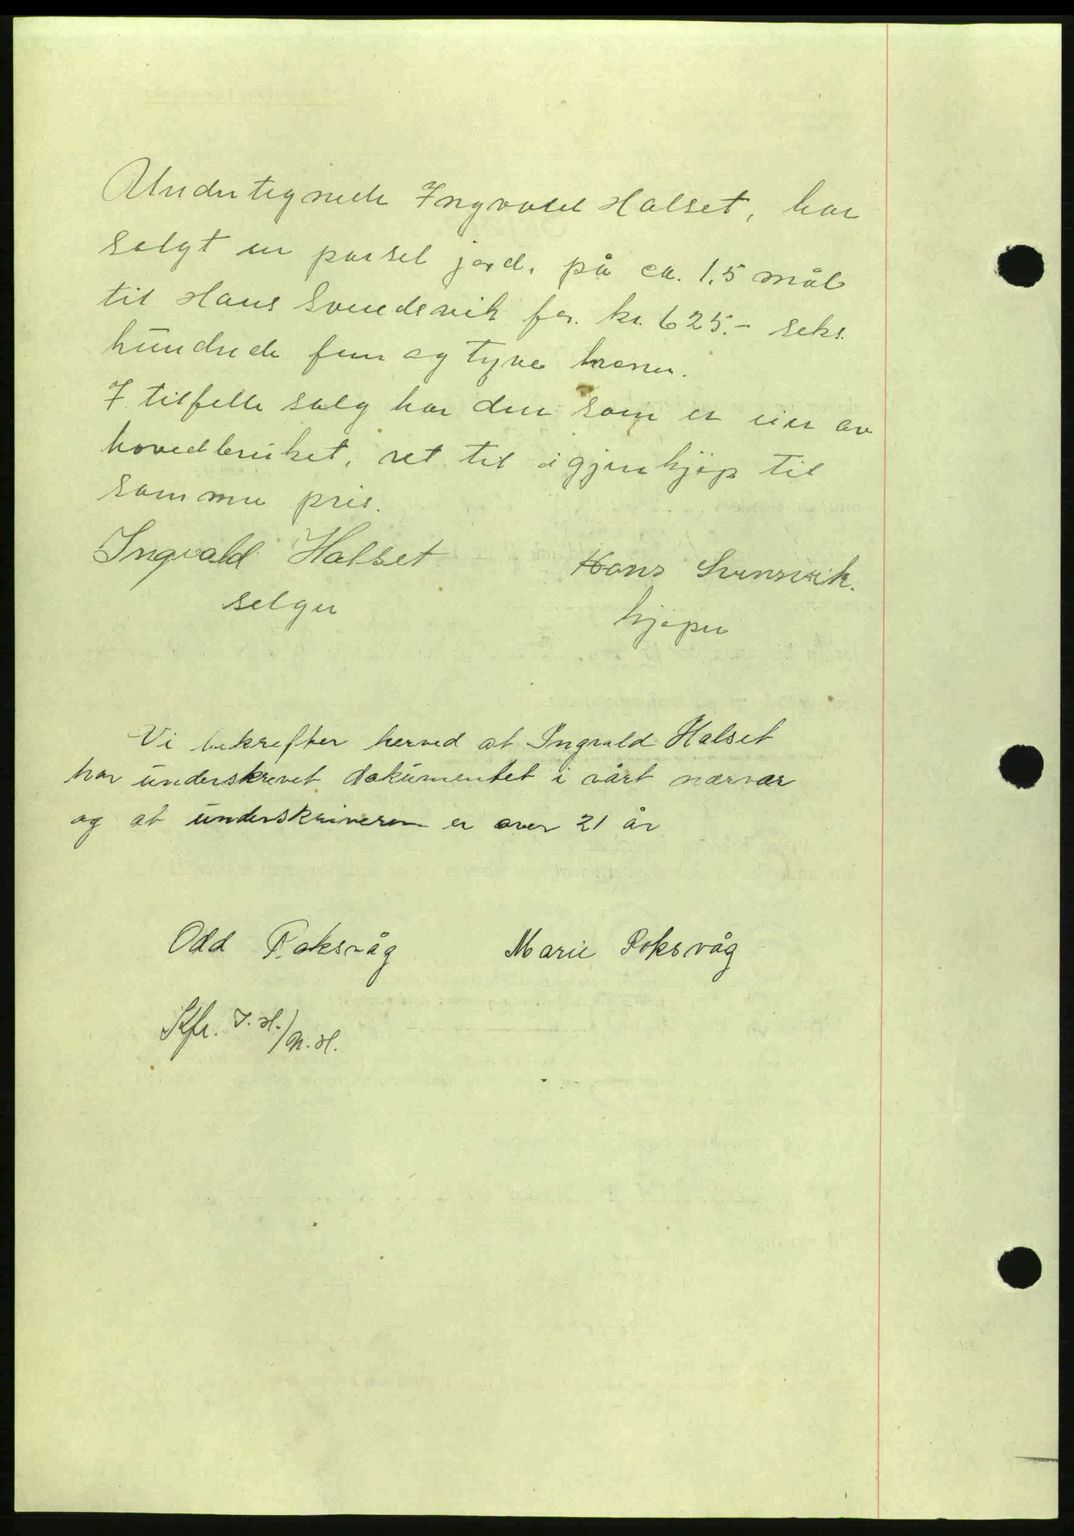 Undertegnede Ingvald Halset, har
solgt en parsel jord. på ca. 1,5 mål
til Hans Svendsvik for. kr. 625.- seks.
hundrede fem og tyve kroner.
I tilfelle salg har den som er eier av
hovedbruket, ret til igjenkjøp til
samme pris.
Ingvald Halset Hans Svensvik.
selger kjøper
Vi bekrefter herved at Ingvald Halset
har underskrevet dokumentet i vårt nærvær
og at underskriveren er over 21 år
Odd Roksvåg Marie Roksvåg
Kfr. I. H./N. H.